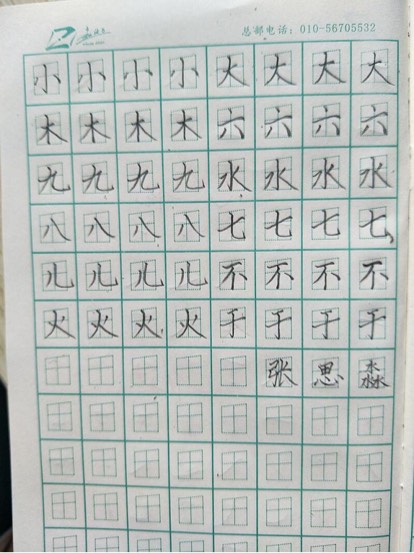 总部电话：010-56705532
小小小小大大大大
木木木木六六六六
九九九九水水水水
八八八八七七七七
儿儿儿儿不不不不
火火火火于于于于
张思淼